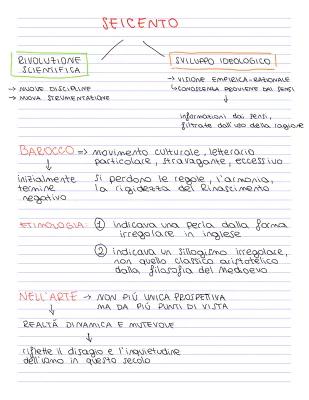 SEICENTO
RIVOLUZIONE
SCIENTIFICA
→ NUOVE DISCIPLINE
→ NUOVA STRUMENTAZIONE
SVILUPPO IDEOLOGICO
→ VISIONE EMPIRICA-RAZIONALE
↳ CONOSCENZA PROVIENE DAI SENSI
↓
informazioni dai sensi,
filtrate dall'uso della ragione
BAROCCO => movimento culturale, letterario
particolare, stravagante, eccessivo
↓
inizialmente
termine
negativo
si perdono le regole, l'armonia,
la rigidezza del Rinascimento
ETIMOLOGIA: ① indicava una perla dalla forma
irregolare in inglese
② indicava un sillogismo irregolare,
non quello classico aristotelico
dalla filosofia del Medioevo
NELL'ARTE → NON PIÚ UNICA PROSPETTIVA
MA DA PIÚ PUNTI DI VISTA
↓
REALTÁ DINAMICA E MUTEVOLE
↓
riflette il disagio e l'inquietudine
dell'uomo in questo secolo